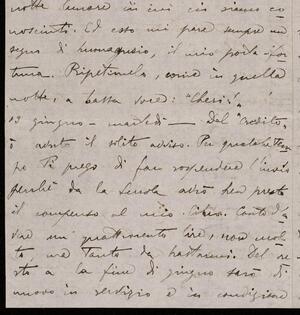 notte lunare in cui ci siamo co-
nosciuti. Ed esso mi pare sempre un
segno di buonaugurio, il mio porta for-
tuna. Ripetimela, come in quella
notte, a bassa voce: "Cheri!"
13 giugno - martedì — Dal "Credito"
ò avuto il solito avviso. Per qualche tem-
po Ti prego di far sospendere l'invio
perché da la Scuola avrò ben presto
il compenso al mio libro. Conto d'a-
vere un quattrocento lire, non mol-
to ma tanto da bastarmi. Del re-
sto a la fine di giugno sarò di
nuovo in servizio e in condizione